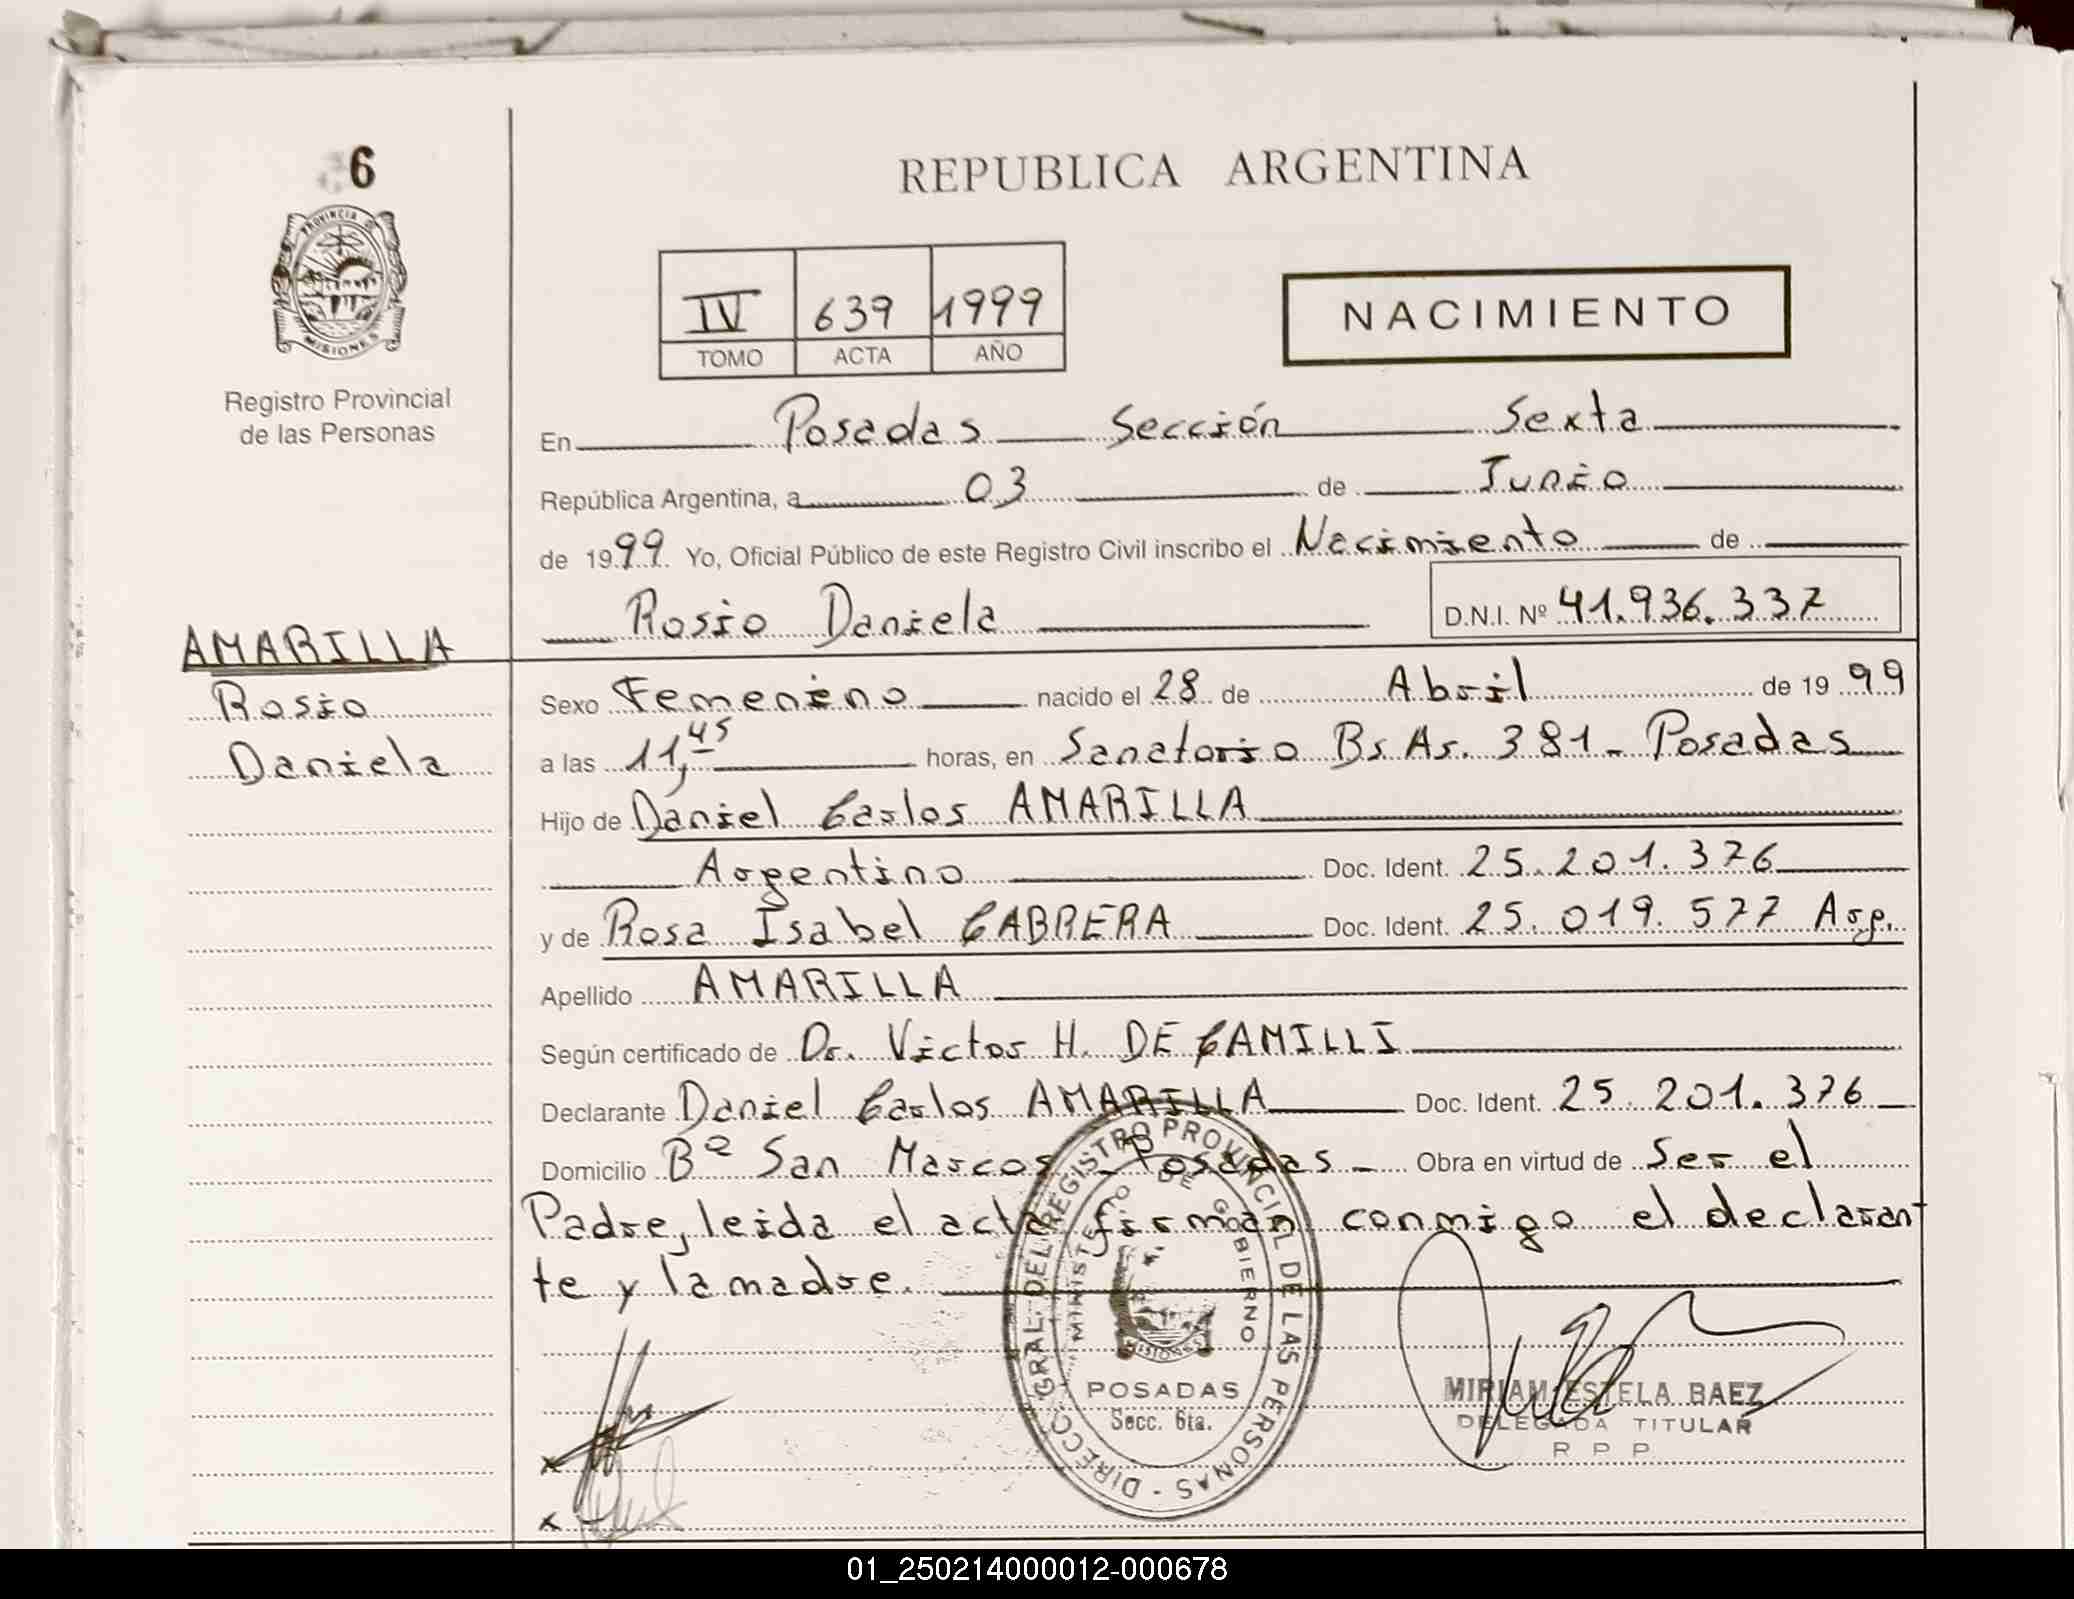 6
PROVINCIA DE
MISIONES
Registro Provincial
de las Personas
AMARILLA
Rosio
Daniela
REPUBLICA ARGENTINA
IV 639 1999
TOMO ACTA AÑO
NACIMIENTO
En Posadas Sección Sexta
República Argentina, a 03 de Junio
de 1999 Yo, Oficial Público de este Registro Civil inscribo el Nacimiento de
Rosio Daniela D.N.I. Nº 41.936.337
Sexo Femenino nacido el 28 de Abril de 1999
a las 11,45 horas, en Sanatorio Bs. As. 381 - Posadas
Hijo de Daniel Carlos AMARILLA
Argentino Doc. Ident. 25.201.376
y de Rosa Isabel CABRERA Doc. Ident. 25.019.577 Arg.
Apellido AMARILLA
Según certificado de Dr. Victor H. DE CAMILLI
Declarante Daniel Carlos AMARILLA Doc. Ident. 25.201.376
Domicilio Bº San Marcos - Posadas - Obra en virtud de Ser el
Padre, leida el acta firman conmigo el declaran
te y la madre.
DIRECC. GRAL. DEL REGISTRO PROVINCIAL DE LAS PERSONAS -
MINISTERIO DE GOBIERNO
MISIONES
POSADAS
Secc. 6ta.
MIRIAM ESTELA BAEZ
DELEGADA TITULAR
R P P
x
x
01_250214000012-000678